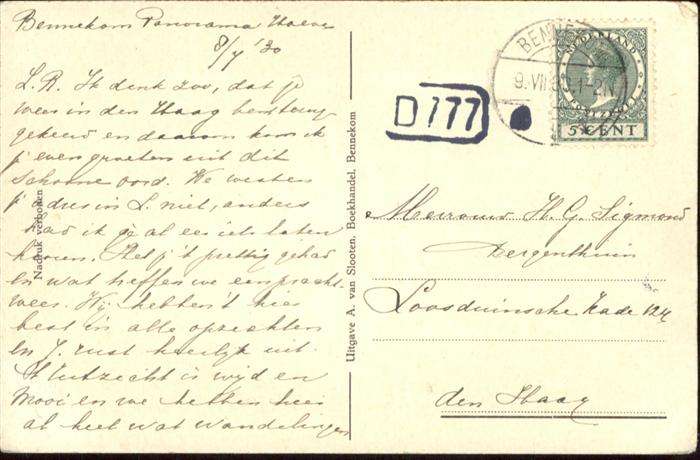 Bennekom Panorama Hoeve
8/7 '30
L. R. Ik denk zoo, dat je
weer in den Haag bent terug
gekeerd en daarom kom ik
je even groeten uit dit
schoone oord. We wisten
je dus in L. niet, anders
had ik je al eer iets laten
hooren. Heb j't prettig gehad
en wat treffen we een pracht
weer. Wij hebben 't hier
best in alle opzichten
en J. rust heerlijk uit.
't Uitzicht is wijd en
mooi en we hebben hier
al heel wat wandelingen
Nadruk verboden
Uitgave A. van Slooten. Boekhandel, Bennekom
D 777
BENNE
9.VII 1-2N
NEDERLAND
5 CENT
Mevrouw H. G. Sigmond
Loosduinsche Kade
den Haag